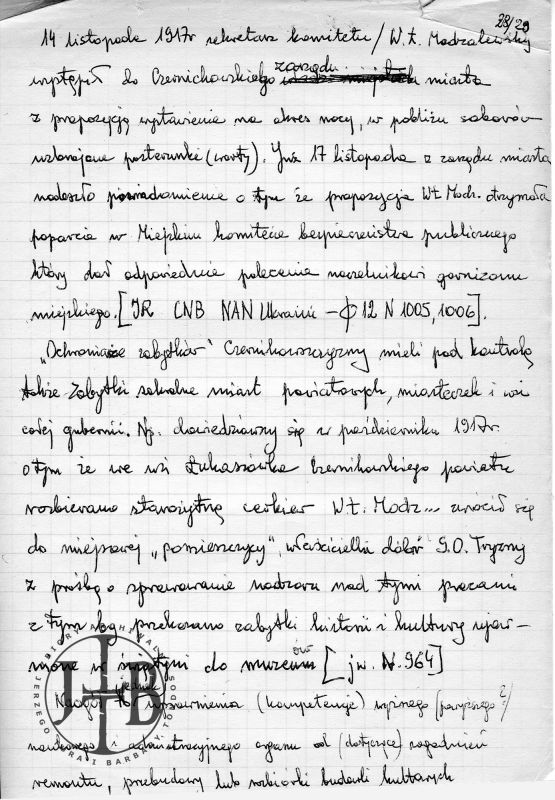 28/29
14 listopada 1917r sekretarz komitetu / W. Ł. Modzalewski
wystąpił do Czernichowskiego zarządu miasta
z propozycją wystawienia na okres nocy, w pobliżu soborów
uzbrojone posterunki (warty). Już 17 listopada z zarządu miasta
nadeszło powiadomienie o tym że propozycja Wł. Modz. otrzymała
poparcie w Miejskim komitecie bezpieczeństwa publicznego
który dał odpowiednie polecenia naczelnikowi garnizonu
miejskiego. [JR CNB NAN Ukraini – ф 12 N 1005, 1006].
„Ochroniarze zabytków" Czernihowszczyzny mieli pod kontrolą
także zabytki sakralne miast powiatowych, miasteczek i wsi
całej guberni. Np. dowiedziawszy się w październiku 1917r.
o tym że we wsi Łukaszówka Czernihowskiego powiatu
rozbierano starożytną cerkiew Wł. Modz... zwrócił się
do miejscowej „pomieszczycy", właścicielki dóbr S.O. Tryzny
z prośbą o sprawowanie nadzoru nad tymi pracami
z tym by przekazano zabytki historii i kultury ujaw-
nione w świątyni do muzeów [jw. N. 964]
Nadal to jednak uprawnienia (kompetencje) wyższego (powyższego?)
naukowego i administracyjnego organu od (dotyczące) zagadnień
remontu, przebudowy lub rozbiórki budowli kultowych
ZBIORY ARCHIWALNE
JERZEGO I BARBARY TODOS
JHB